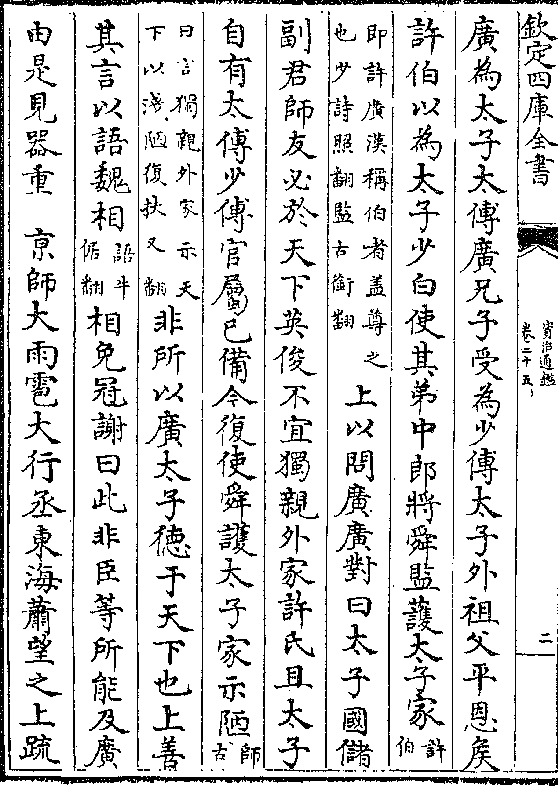 欽定四庫全書
資治通鑑
卷二十五
二
廣為太子太傅廣兄子受為少傅太子外祖父平恩侯
許伯以為太子少白使其弟中郎將舜監護太子家許伯
即許廣漢稱伯者蓋尊之
也少詩照翻監古銜翻
上以問廣廣對曰太子國儲
副君師友必於天下英俊不宜獨親外家許氏且太子
自有太傅少傅官屬已備今復使舜護太子家示陋師古
曰言獨親外家示天
下以淺陋復扶又翻
非所以廣太子徳于天下也上善
其言以語魏相
語牛
倨翻
相免冠謝曰此非臣等所能及廣
由是見器重 京師大雨雹大行丞東海蕭望之上疏